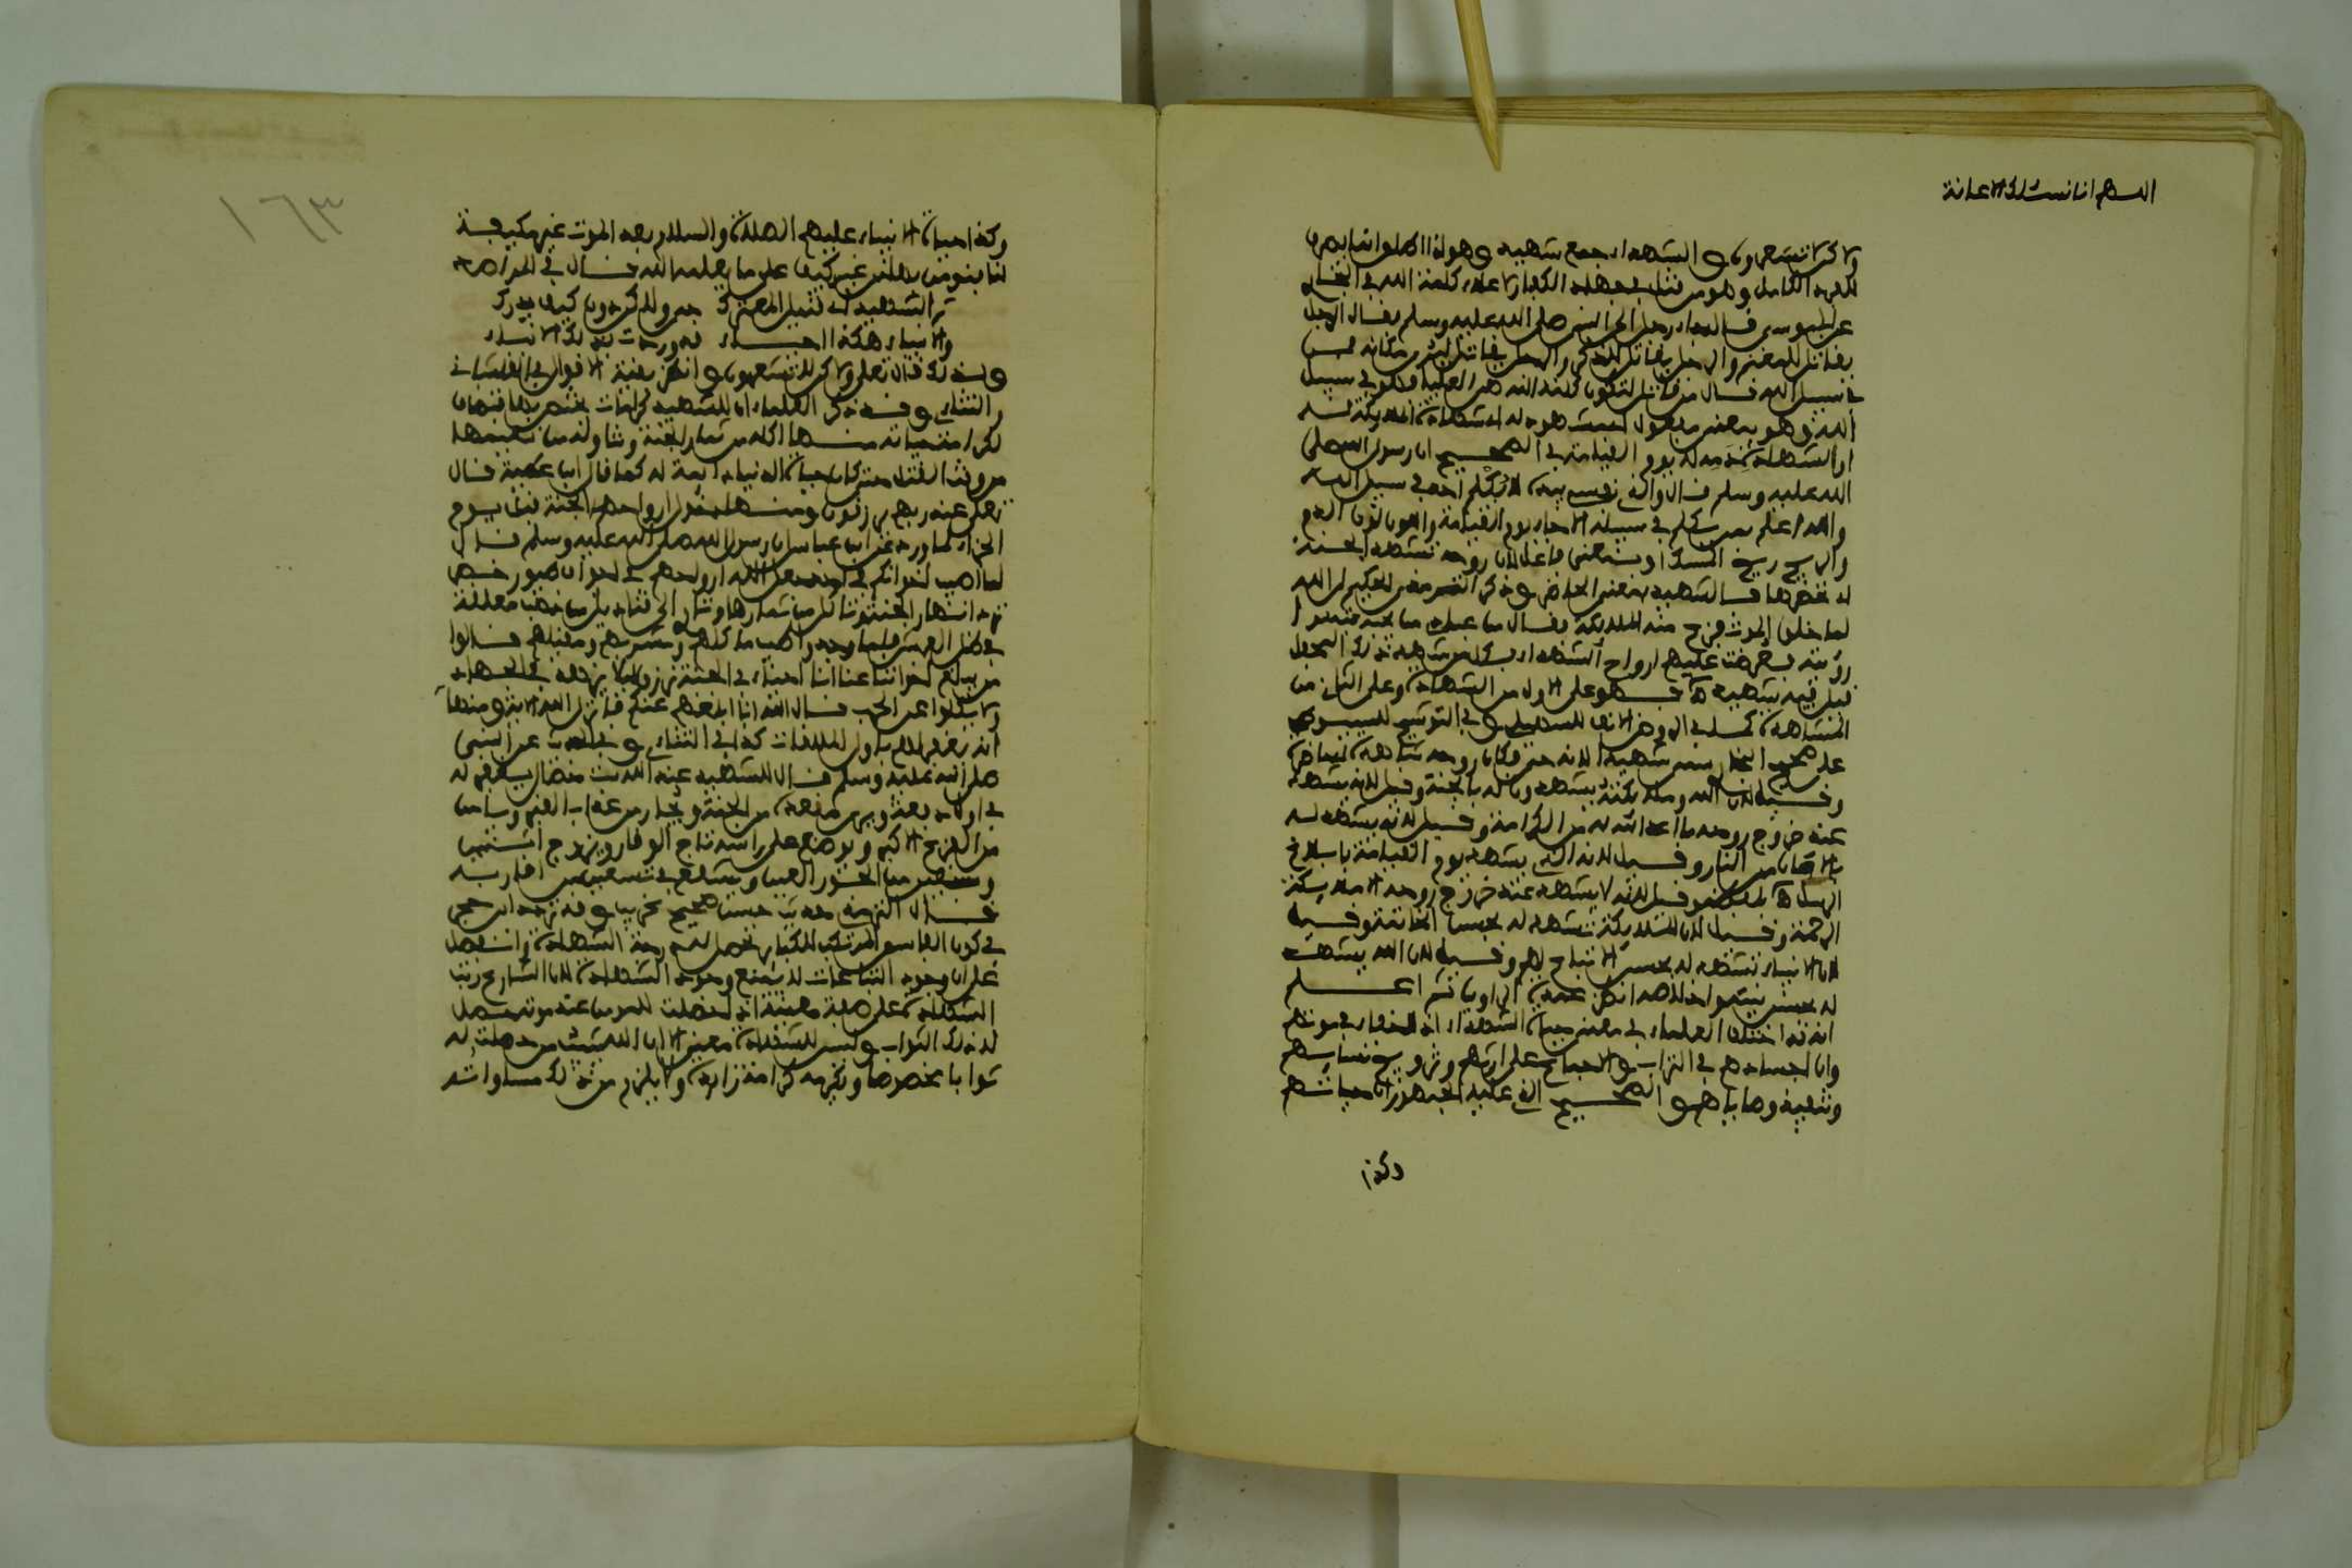 اللهم انا نسئلك الاعانة
ولاكن لا تشعرون والشهداء جمع شهيد وهو اذا اطلق انما يصرف
للفرد الكامل وهو من قتل في جهاد الكفار لاعلاء كلمة الله في البخاري
عن ابي موسى قال جاء رجل الى النبي صلى الله عليه وسلم فقال الرجل
يقاتل للمغنم والرجل يقاتل للذكر والرجل يقاتل ليرى مكانه فمن
في سبيل الله قال من قاتل لتكون كلمة الله هي العليا فهو في سبيل
الله وهو بمعنى مفعول اي مشهود له اي شهادة الملائكة له
او الشهادة له يوم القيامة في الصحيح ان رسول الله صلى
الله عليه وسلم قال والذي نفسي بيده لا يكلم احد في سبيل الله
والله اعلم بمن يكلم في سبيله الا جاء يوم القيامة واللون لون الدم
والريح ريح المسك او بمعنى فاعل لان روحه تشهد الجنة
اي تحضرها فالشهيد بمعنى الحاضر وذكر الترمذي الحكيم ان الله
لما خلق الموت فزع منه الملائكة فقال من عبادي من يحبه
رؤيته فعرضت عليهم ارواح الشهداء
قيل فيه شهيد اهـ فهو على الاول من الشهادة وعلى الثاني من
المشاهدة كما في الروض الانف للسهيلي وفي التوشيح للسيوطي
على صحيح البخاري سمي شهيدا لانه حي فكان روحه شاهدة اي حاضرة
وقيل لان الله وملائكته يشهدون له بالجنة وقيل لانه يشهد
عند خروج روحه ما اعد الله له من الكرامة وقيل لانه يشهد له
بالامان من النار وقيل لانه الذي يشهد يوم القيامة بابلاغ
الرسل اهـ وقيل لانه لا يشهد عند خروج روحه الا ملائكة
الرحمة وقيل لان الملائكة تشهد له بحسن الخاتمة وقيل
لان الانبياء تشهد له بحسن الاتباع لهم وقيل لان الله يشهد
له بحسن نيته واخلاصه انظر عمدة الراوين ثم اعلم
انه قد اختلف العلماء في معنى حياة الشهداء اذ لا خفاء في موتهم
وان اجسادهم في التراب والاجماع على ارثهم وتزويج نسائهم
وتنفيذ وصاياهم والصحيح الذي عليه الجمهور ان حياتهم
وكذا
١٦٣
وكذا حياة الانبياء عليهم الصلاة والسلام بعد الموت غير مكيفة
لنا بنوع من غير كيف على ما يعلمه الله قال في المراصد
ترى الشهيد اي قتيل المعترك حي ولاكن دون كيف يدرك
والانبياء هكذا احياء قد وردت بذلك الانباء
ولذلك قال تعلى ولاكن لا تشعرون وانظر بقية الاقوال في القسطلاني
والتتائي وقد ذكر العلماء ان للشهيد كرامات يختص بها
لكرامته حياته منها اكله من ثمار الجنة وتناوله من نعيمها
من وقت القتل حتى كان حياة الدنيا دائمة له كما قال ابن عطية قال
تعلى عند ربهم يرزقون ومنها دخول ارواحهم الجنة قبل يوم
الجزاء لما ورد عن ابن عباس ان رسول الله صلى الله عليه وسلم قال
لما اصيب اخوانكم في احد جعل الله ارواحهم في اجواف طيور خضر
ترد انهار الجنة وتاكل من ثمارها وتاوي الى قناديل من ذهب معلقة
في ظل العرش فلما وجدوا طيب ماكلهم ومشربهم ومقيلهم قالوا
من يبلغ اخواننا عنا اننا احياء في الجنة نرزق لئلا يزهدوا في الجهاد
ولا ينكلوا عن الحرب قال الله انا ابلغهم عنكم فانزل الله الاية ومنها
انه يغفر له باول الملاقات كذا في التتائي وفي الحديث عن النبي
صلى الله عليه وسلم قال للشهيد عند الله ست خصال يغفر له
في اول دفعة ويرى مقعده من الجنة ويجار من عذاب القبر ويامن
من الفزع الاكبر ويوضع على راسه تاج الوقار ويزوج اثنتين
وسبعين من الحور العين ويشفع في سبعين من اقاربه
قال الترمذي حديث حسن صحيح غريب وقد تردد ابن حجر
في كون الفاسق المرتكب للكبائر تحصل له درجة الشهادة وانفصل
على ان وجود التباعات لا يمنع وجود الشهادة لان الشارع رتب
الشهادة على صفة معينة اذا حصلت للمومن عند موته حصل
له ذلك الثواب وليس للشهادة معنى الا ان الله يثيب من حصلت له
ثوابا مخصوصا ويكرمه كرامة زايدة ولا يلزم من ذلك مساواته